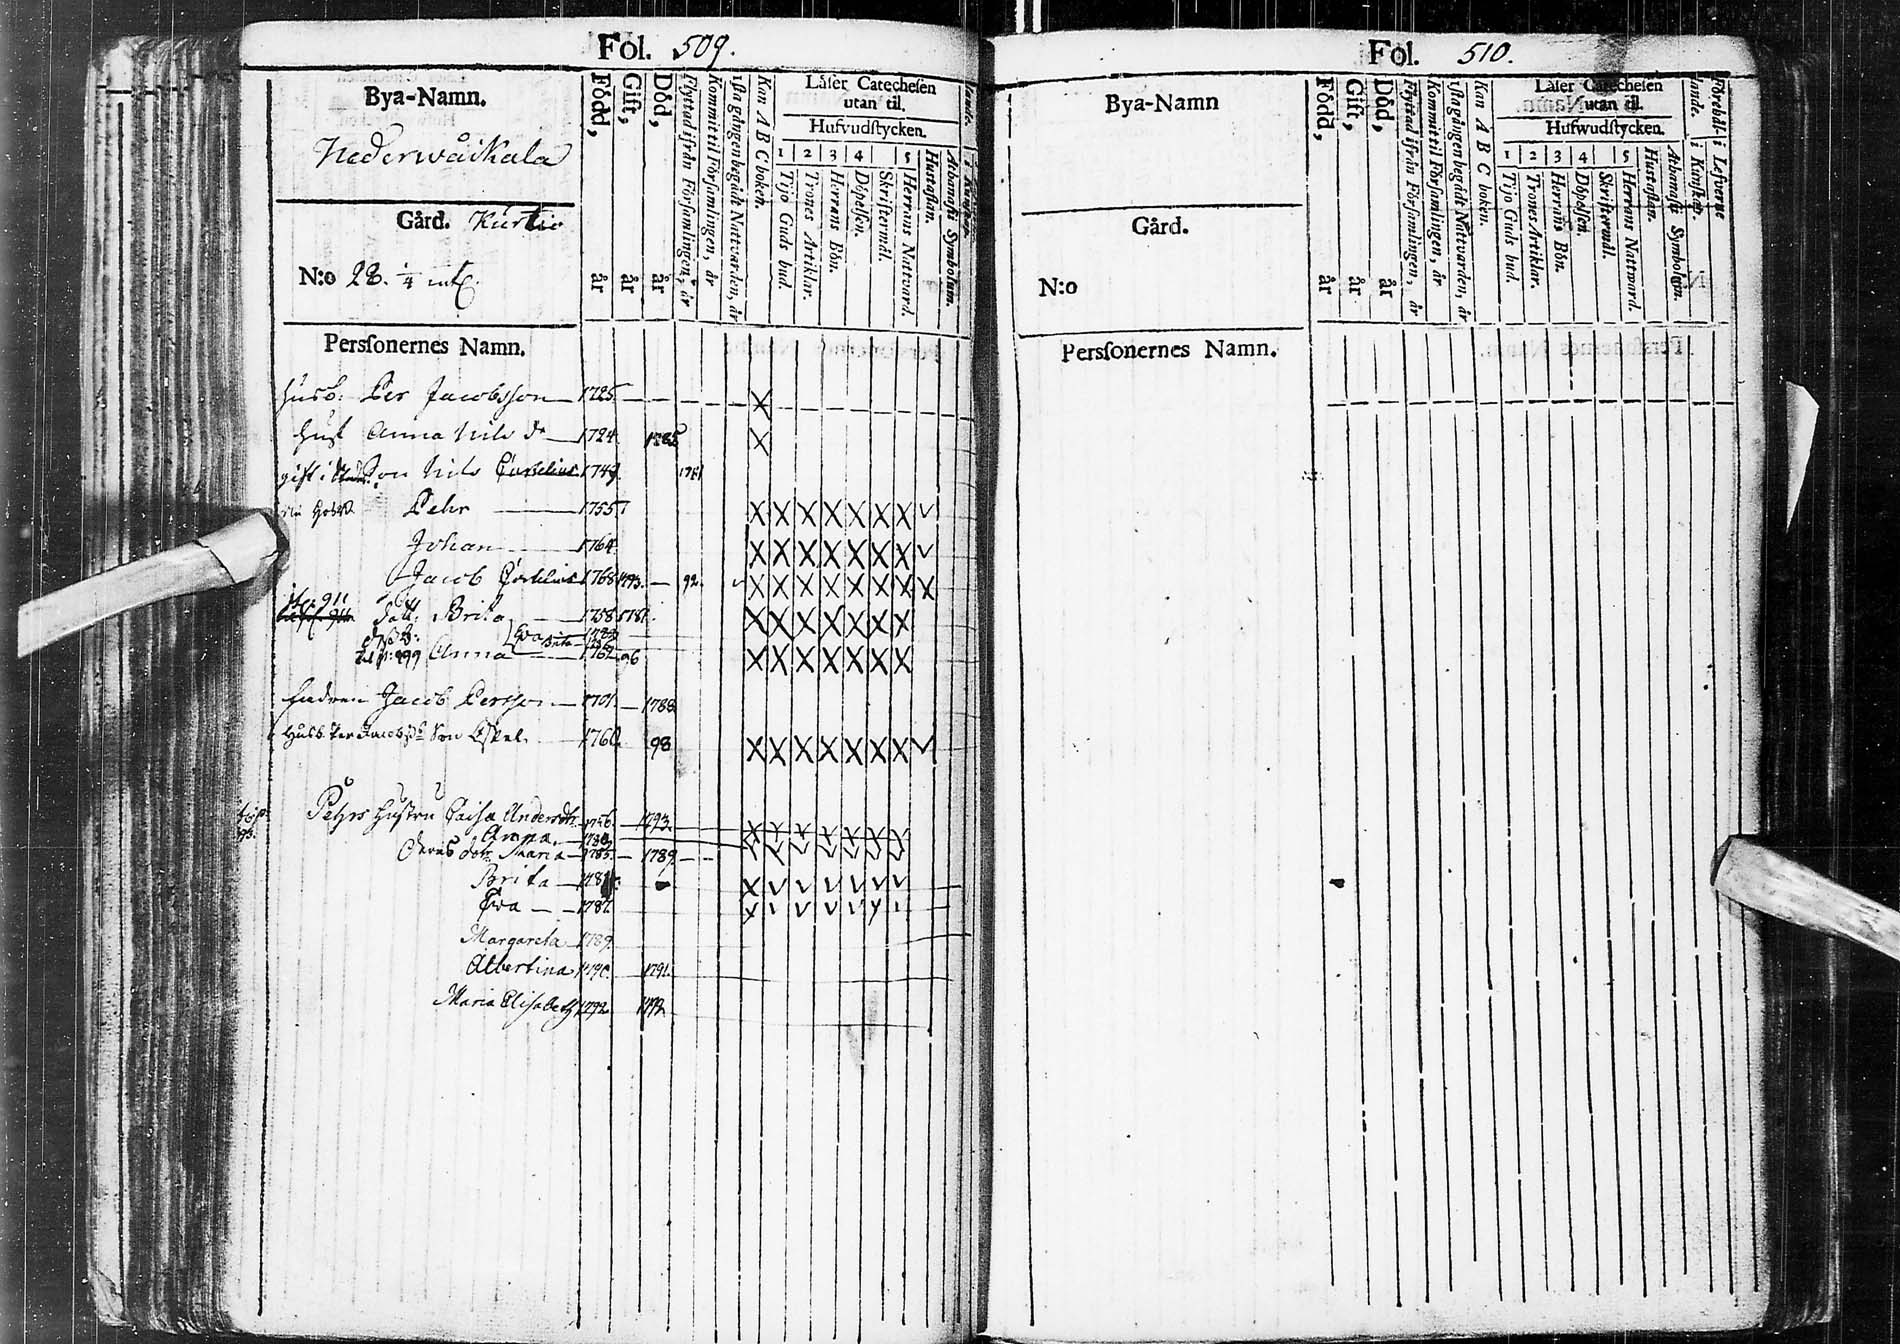 Fol. 509.
Bya-Namn.
Nederwåikala
Gård. Kurtio
N:o 28. 1/4 mtl.
Född, år
Gift, år
Död, år
Flyttad ifrån Församlingen, år
Kommit til Församlingen, år
1sta gången begådt Nattvarden, år
Kan A B C boken.
Läser Catechesen
utan til.
Hufvudstycken.
1 2 3 4 5
Tijo Guds bud.
Trones Artiklar.
Herrans Bön.
Döpelsen.
Skriftermål.
Herrans Nattvard.
Hustaflan.
Athanasii Symbolum.
Perssonernes Namn.
Husb: Per Jacobsson 1725
Hust Anna Nils dr 1724
gift i Son Nils 1749
Pehr 1755
Johan 1764
Jacob 1768 1793. 92.
Dott. Brita 1758 1781
Eva
Brita
Anna 1762 96
Fadren Jacob Persson 1701. 1788
Husb. Per Jacobss: Son Eskel 1760 98
Pehrs Hustru Caisa Andersdr. 1756 1793.
Anna
Deras dr Maria 1785 1789
Brita
Eva 1787
Margareta 1789.
Albertina 1790. 1791.
Maria Elisabeth 1792. 1792
Fol. 510.
Bya-Namn
Gård.
N:o
Född, år
Gift, år
Död, år
Flyttad ifrån Församlingen, år
Kommit til Församlingen, år
1sta gången begådt Nattvarden, år
Kan A B C boken.
Läser Catechesen
utan til.
Hufwudstycken.
1 2 3 4 5
Tijo Guds bud.
Trones Artiklar.
Herrans Bön.
Döpelsen.
Skriftermål.
Herrans Nattward.
Hustaflan.
Athanasii Symbolum.
Förehållande. i Kunskap.
i Lefverne
Perssonernes Namn.